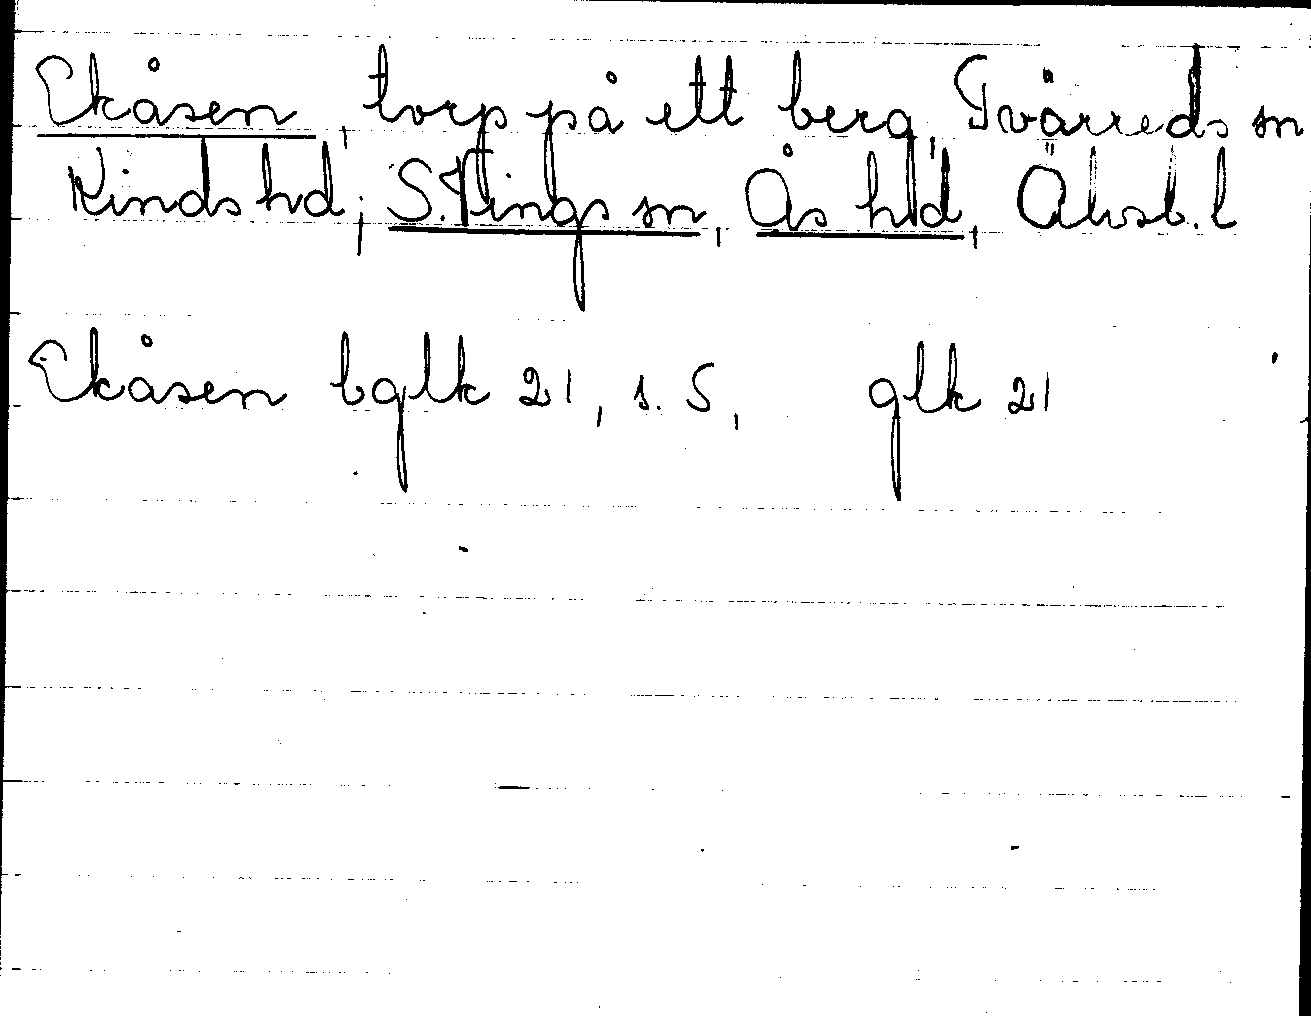 Ekåsen, torp på ett berg, Tvärreds sn
Kinds hd; S. Vings sn, Ås hd, Älvsb. l
Ekåsen bglk 21, s. 5, glk 21